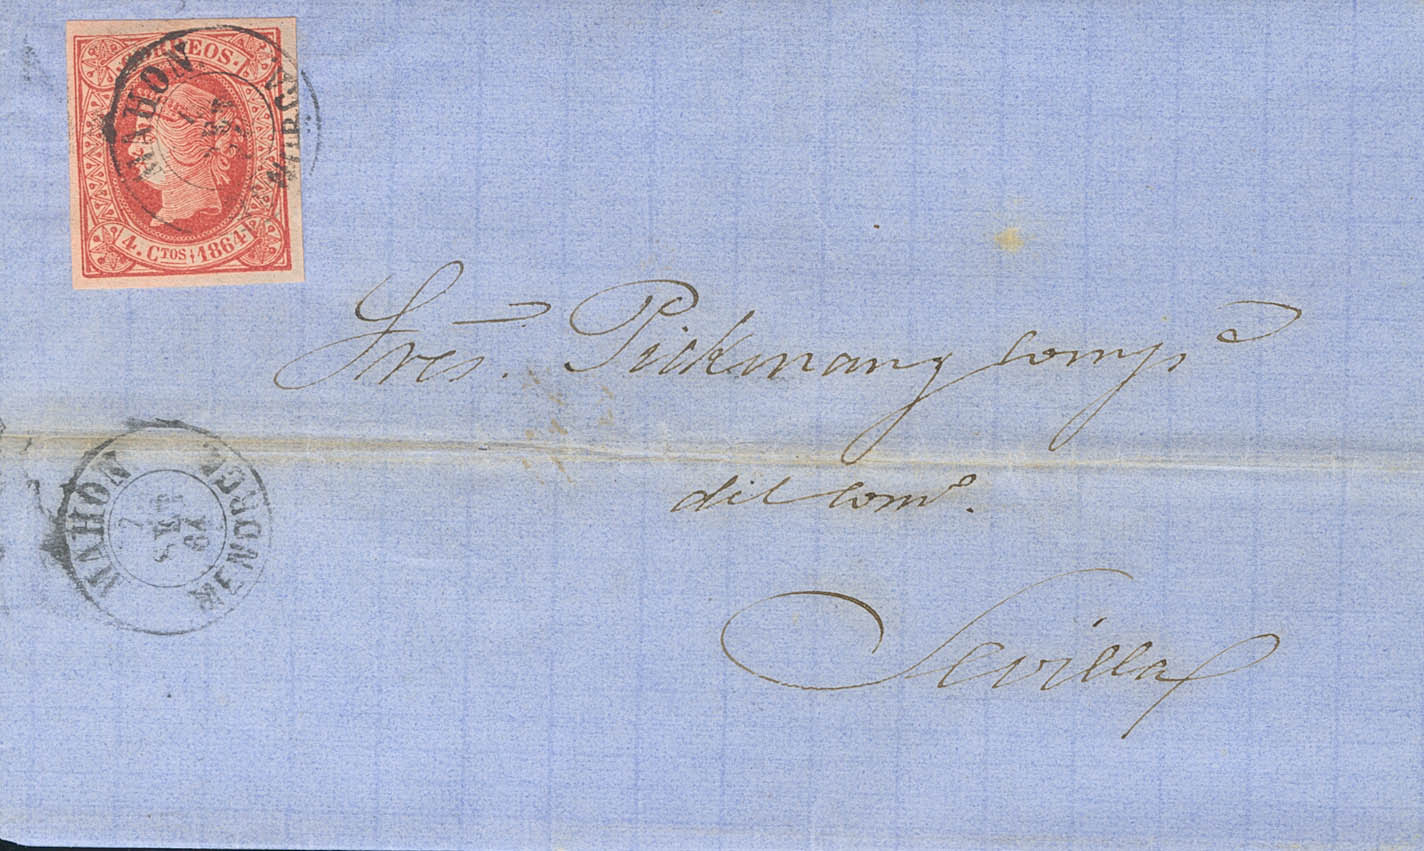 CORREOS.
4. CTOS 1864
MAHON
MENORCA
Sres. Pickman y comp.ª
del com.º
Sevilla
MAHON
7
SET
64
MENORCA